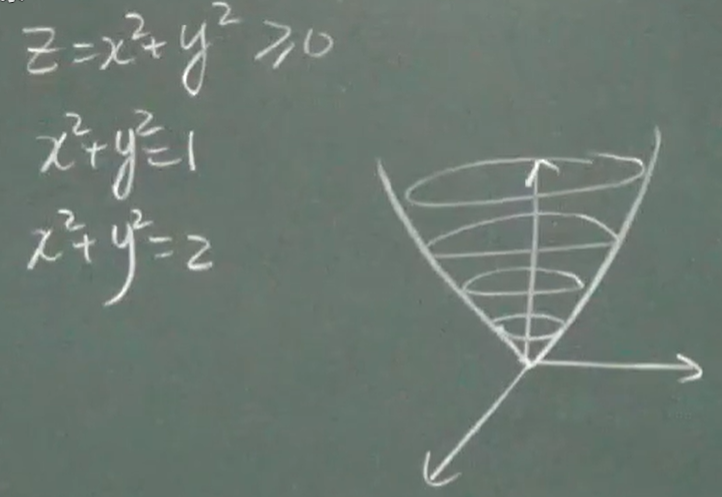 z=x²+y²⩾0
x²+y²=1
x²+y²=2